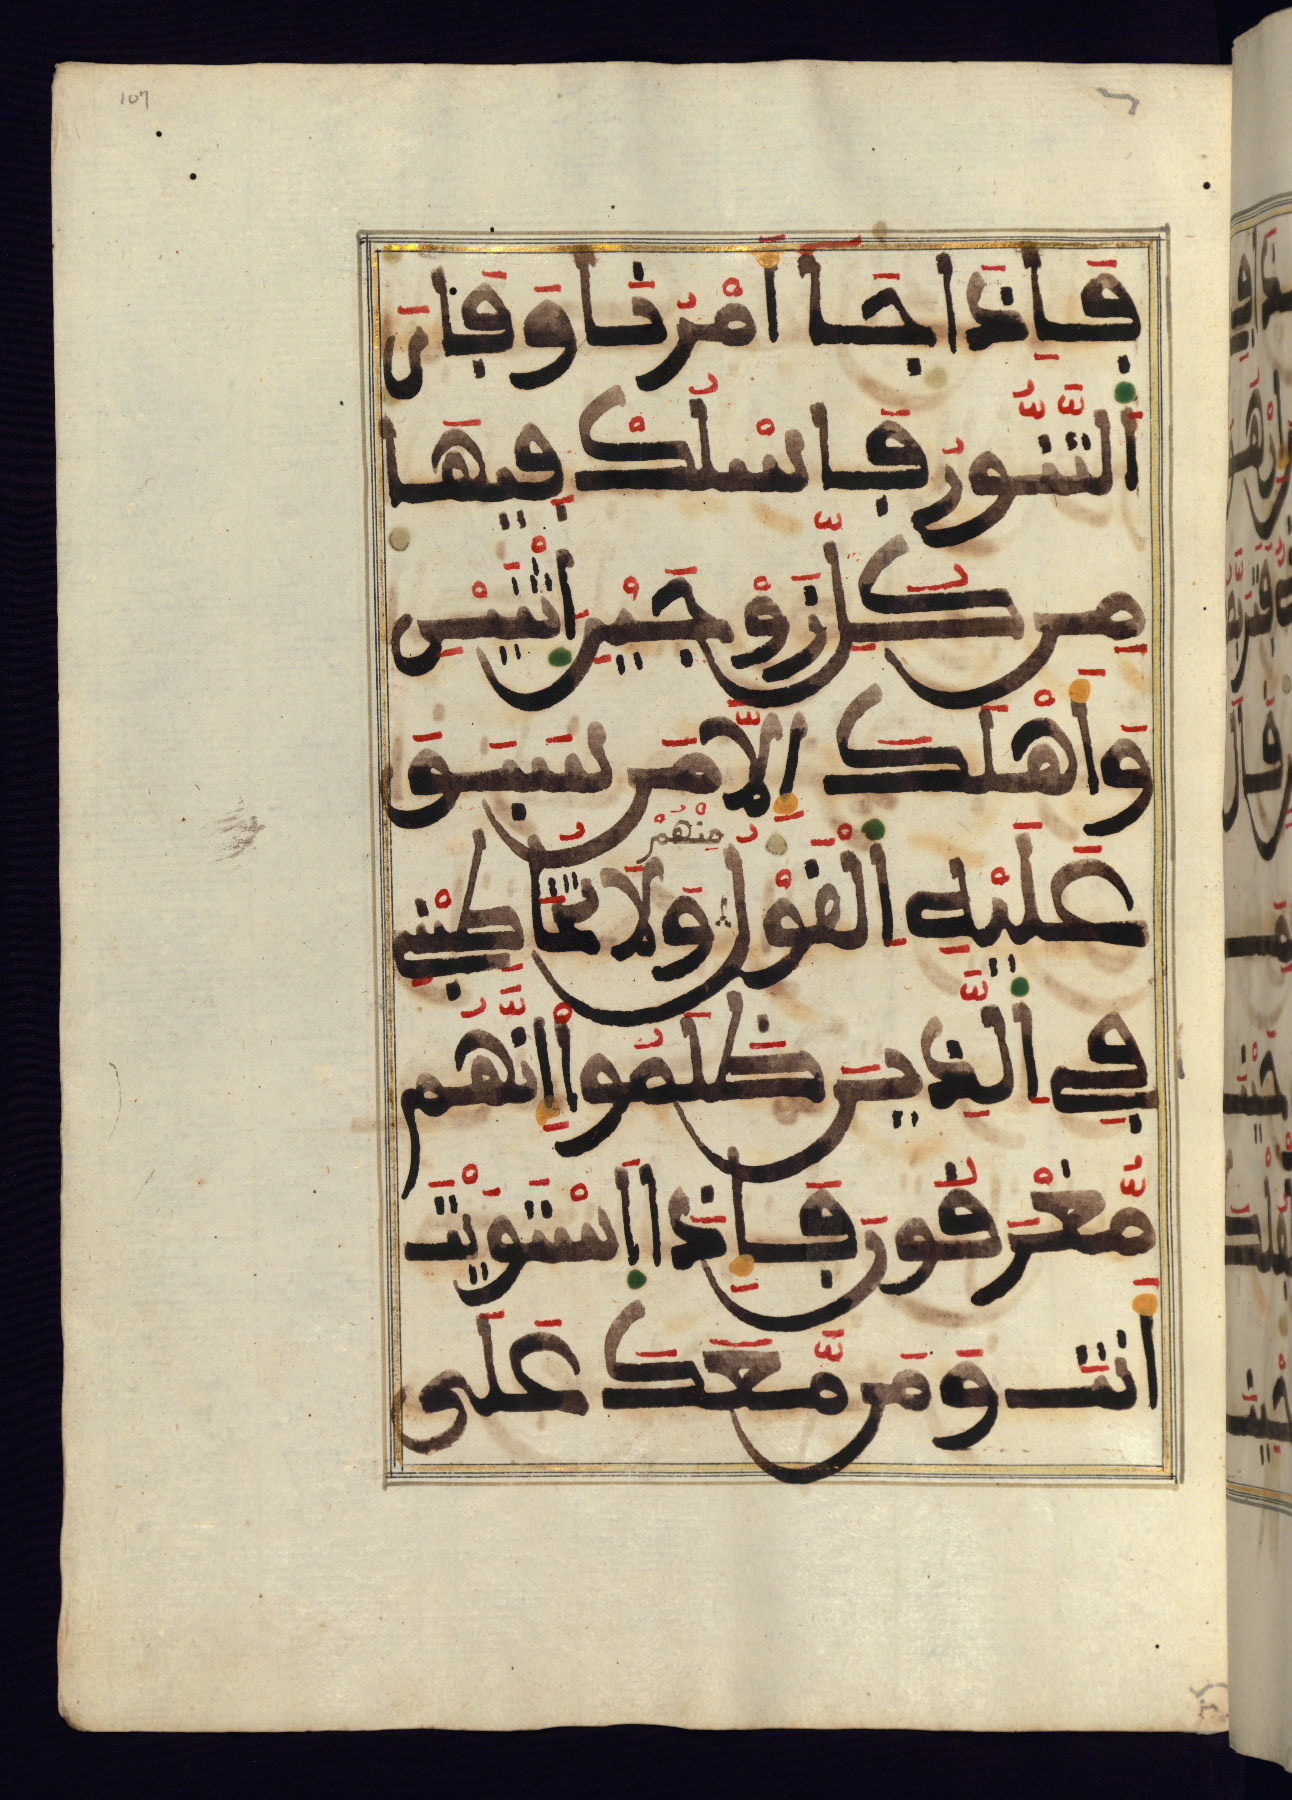 107
فَإِذَا جَآ أَمْرُنَا وَفَارَ
اَلتَّنُّورُ فَاسْلُكْ فِيهَا
مِن كُلِّ زَوْجَيْنِ اِثْنَيْنِ
وَأَهْلَكَ إِلَّا مَن سَبَقَ
مِنْهُمْ
عَلَيْهِ اِلْقَوْلُ وَلَا تُخَٰطِبْنِے
فِے اِلذِينَ ظَلَمُوا إِنَّهُم
مُّغْرَقُونَ فَإِذَا اَسْتَوَيْتَ
أَنتَ وَمَن مَّعَكَ عَلَى